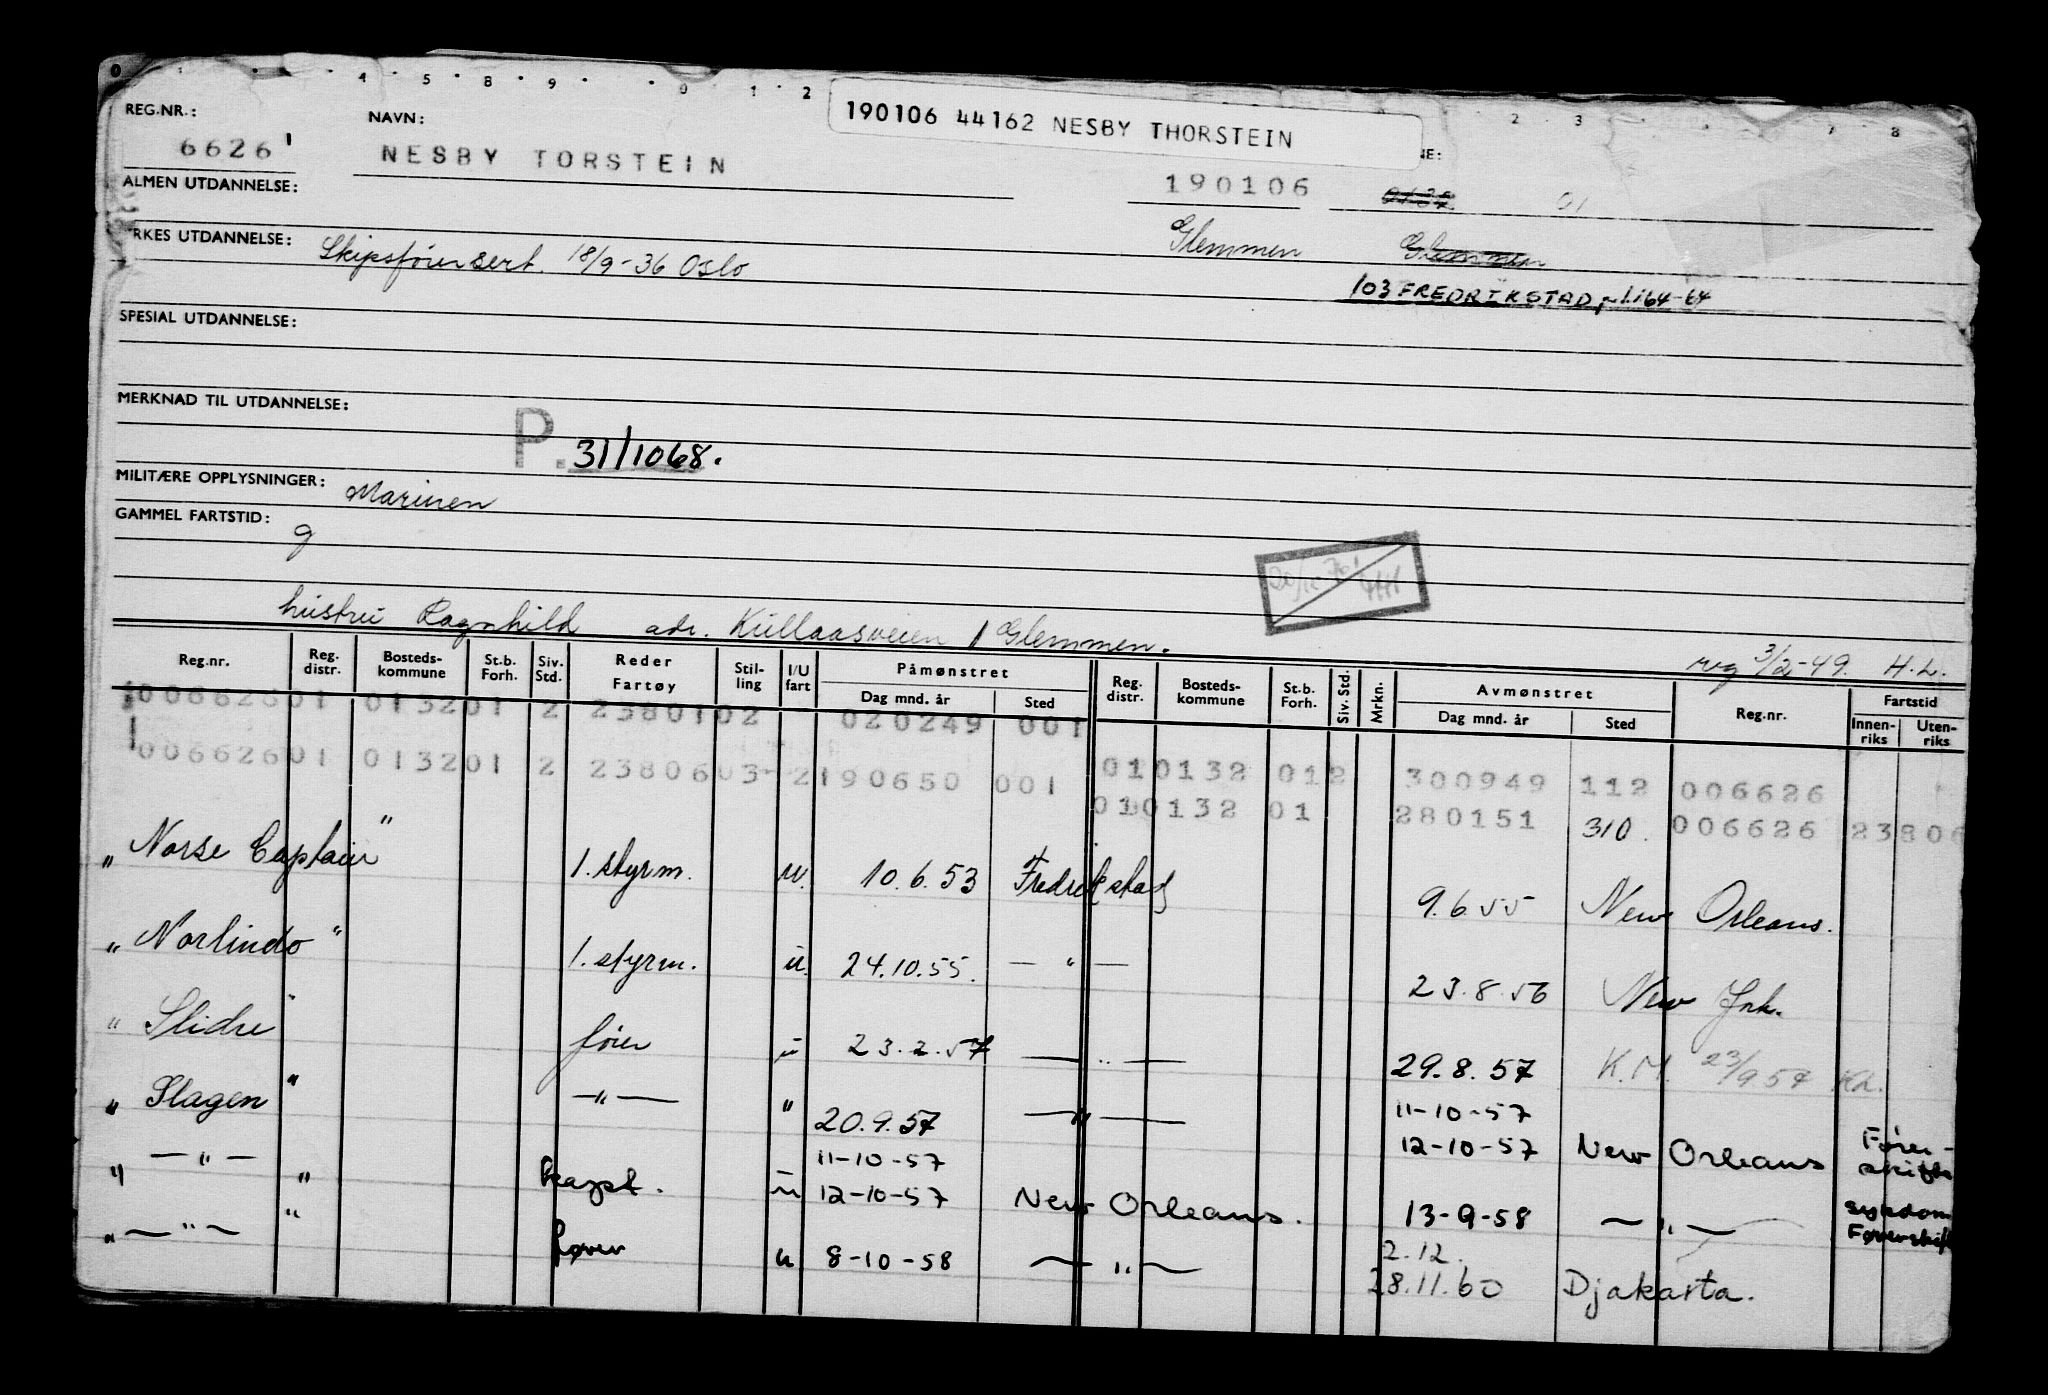 0 4 5 8 9 0 1 2 2 3 7 8
REG.NR.: NAVN: 190106 44162 NESBY THORSTEIN NE:
6626 NESBY TORSTEIN 190106 0132 01
ALMEN UTDANNELSE:
Glemmen Glemmen
RKES UTDANNELSE: Skipsførersert. 18/9-36 Oslo
103 FREDRIKSTAD, 1.164-64
SPESIAL UTDANNELSE:
MERKNAD TIL UTDANNELSE:
P. 31/1068.
MILITÆRE OPPLYSNINGER: Marinen
GAMMEL FARTSTID: 9
hustru Ragnhild adr. Kullaasveien Glemmen.
reg 3/2-49. H.L.
Reg.nr. Reg. distr. Bosteds- kommune St.b. Forh. Siv. Std. Reder Fartøy Stil- ling I/U fart Påmønstret Dag mnd. år Sted Reg. distr. Bosteds- kommune St.b. Forh. Siv. Std. Mrkn. Avmønstret Dag mnd. år Sted Reg.nr. Fartstid Innen- riks Uten- riks
006626 01 0132 01 2 2380102 020249 001
010132 012 300949 112 006626
006626 01 0132 01 2 2380603-2 190650 001
010132 01 280151 310. 006626 23806
" Norse Captain " 1. styrm. u. 10.6.53 Fredrikstad 9.6.55 New Orleans.
" Norlindo " 1. styrm. u. 24.10.55. — " — 23.8.56 New Yrk.
" Slidre " fører u 23.2.57 — " — 29.8.57 K.M. 23/9 57
" Slagen " — " — " 20.9.57 — " — 11-10-57
12-10-57 New Orleans Fører-skifte
" — " — " kapt. u 11-10-57
12-10-57 New Orleans. 13-9-58 — " — sykdom Førerskift
" — " — " fører u 8-10-58 — " — 2.12.
28.11.60 Djakarta.